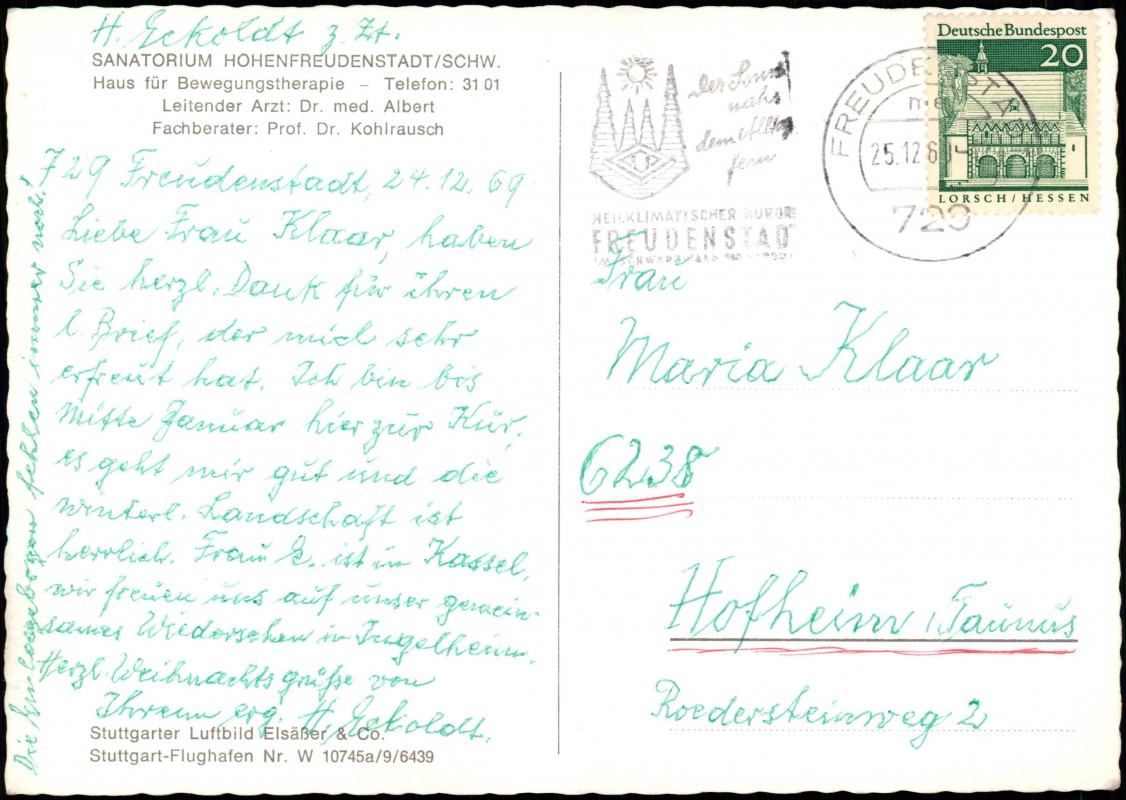 H. Eckoldt z. Zt.
SANATORIUM HOHENFREUDENSTADT/SCHW.
Haus für Bewegungstherapie – Telefon: 31 01
Leitender Arzt: Dr. med. Albert
Fachberater: Prof. Dr. Kohlrausch
729 Freudenstadt, 24.12.69
Liebe Frau Klaar, haben
Sie herzl. Dank für ihren
l. Brief, der mich sehr
erfreut hat. Ich bin bis
Mitte Januar hier zur Kur,
es geht mir gut und die
winterl. Landschaft ist
herrlich. Frau E. ist in Kassel,
wir freuen uns auf unser gemein-
sames Wiedersehen in Ingelheim.
Herzl. Weihnachtsgrüße von
Ihrem erg. H. Eckoldt.
Die Einlagebogen fehlen immer noch!
Stuttgarter Luftbild Elsäßer & Co.
Stuttgart-Flughafen Nr. W 10745a/9/6439
Der Sonne
nahe
dem Alltag
fern
HEILKLIMATISCHER KURORT
FREUDENSTADT
FREUDENSTADT
25.12.69
729
Deutsche Bundespost
20
LORSCH/HESSEN
Frau
Maria Klaar
6238
Hofheim i. Taunus
Roedersteinweg 2